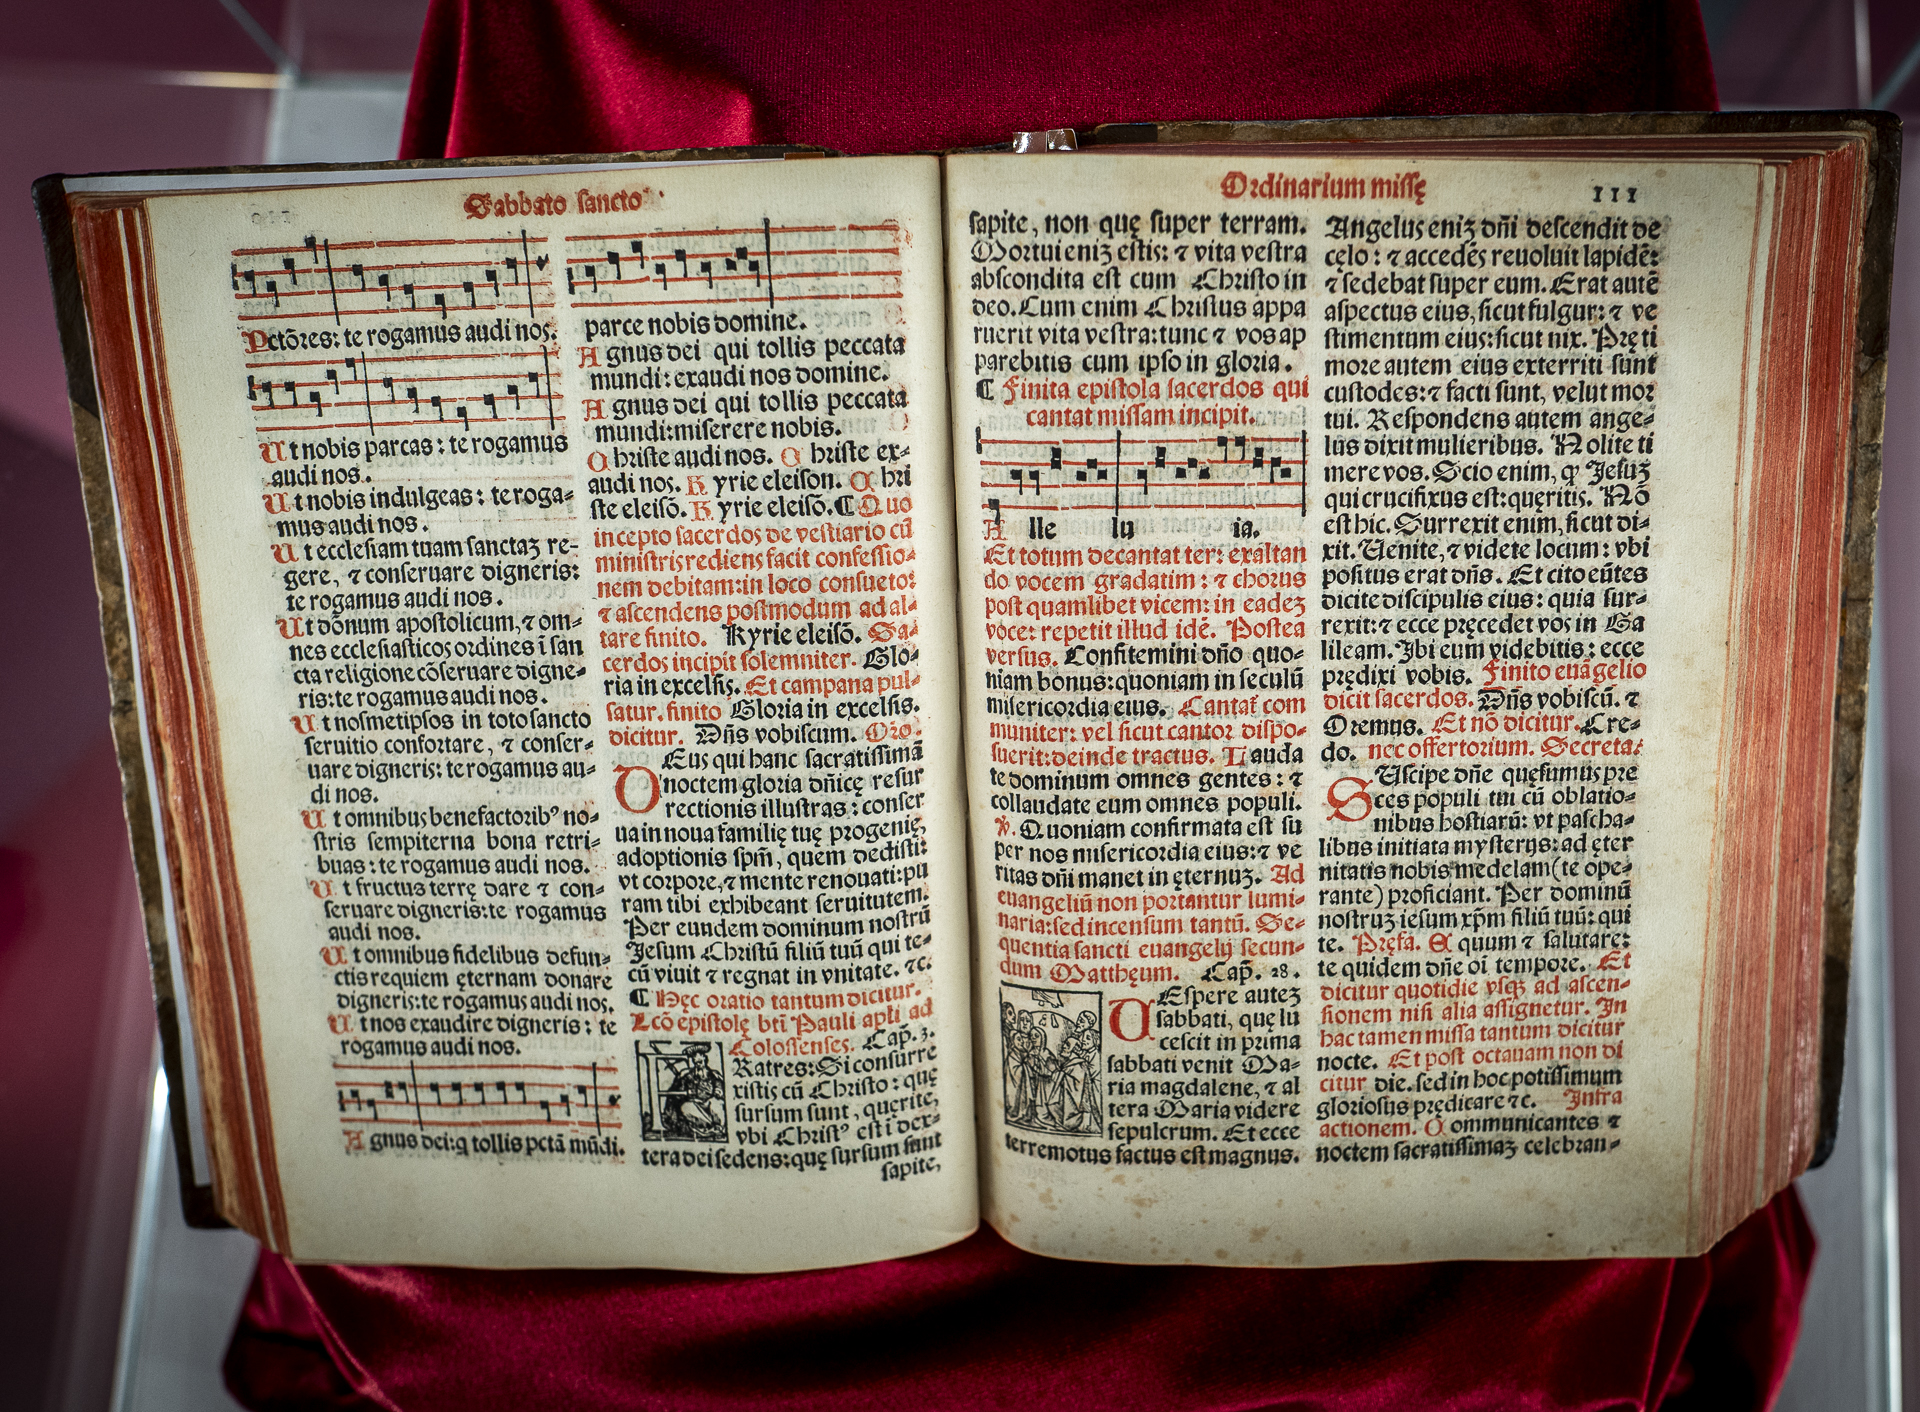 Sabbato sancto
Pctōres: te rogamus audi nos.
Ut nobis parcas: te rogamus
audi nos.
Ut nobis indulgeas: te roga-
mus audi nos.
Ut ecclesiam tuam sanctaȝ re-
gere, ⁊ conseruare digneris:
te rogamus audi nos.
Ut dōnum apostolicum, ⁊ om-
nes ecclesiasticos ordines ī san
cta religione cōseruare digne-
ris: te rogamus audi nos.
Ut nosmetipsos in toto sancto
seruitio confortare, ⁊ conser-
uare digneris: te rogamus au-
di nos.
Ut omnibus benefactoribꝰ no-
stris sempiterna bona retri-
buas: te rogamus audi nos.
Ut fructus terrę dare ⁊ con-
seruare digneris: te rogamus
audi nos.
Ut omnibus fidelibus defun-
ctis requiem ęternam donare
digneris: te rogamus audi nos.
Ut nos exaudire digneris: te
rogamus audi nos.
Agnus dei: q tollis pctā mūdi.
parce nobis domine.
Agnus dei qui tollis peccata
mundi: exaudi nos domine.
Agnus dei qui tollis peccata
mundi: miserere nobis.
Christe audi nos. Christe ex-
audi nos. Kyrie eleison. Chri
ste eleisō. Kyrie eleisō. ¶ Quo
incepto sacerdos de vestiario cū
ministris rediens facit confessio-
nem debitam: in loco consueto:
⁊ ascendens postmodum ad al-
tare finito. Kyrie eleisō. Sa-
cerdos incipit solemniter. Glo-
ria in excelsis. Et campana pul-
satur. finito Gloria in excelsis.
dicitur. Dn̄s vobiscum. Oro.
DEus qui hanc sacratissimā
noctem gloria dn̄icę resur
rectionis illustras: conser
ua in noua familię tuę progenię,
adoptionis spm̄, quem dedisti:
vt corpore, ⁊ mente renouati: pu
ram tibi exhibeant seruitutem.
Per eundem dominum nostrū
Jesum Christū filiū tuū qui te-
cū viuit ⁊ regnat in vnitate. ⁊c.
¶ Hęc oratio tantum dicitur.
Lcō epistolę btī Pauli apli ad
Colossenses. Cap. 3.
Ratres: Si consurre
xistis cū Christo: quę
sursum sunt, querite,
vbi Christꝰ est ī dex-
tera dei sedens: quę sursum sunt
sapite,
Ordinarium missę
111
sapite, non quę super terram.
Mortui eniȝ estis: ⁊ vita vestra
abscondita est cum Christo in
deo. Cum enim Christus appa
ruerit vita vestra: tunc ⁊ vos ap
parebitis cum ipso in gloria.
¶ Finita epistola sacerdos qui
cantat missam incipit.
A lle lu ia.
Et totum decantat ter: exaltan
do vocem gradatim: ⁊ chorus
post quamlibet vicem: in eadeȝ
voce: repetit illud idē. Postea
versus. Confitemini dn̄o quo-
niam bonus: quoniam in seculū
misericordia eius. Cantat̄ com
muniter: vel sicut cantor dispo-
suerit: deinde tractus. Lauda
te dominum omnes gentes: ⁊
collaudate eum omnes populi.
℣. Quoniam confirmata est su
per nos misericordia eius: ⁊ ve
ritas dn̄i manet in ęternuȝ. Ad
euangeliū non portantur lumi-
naria: sed incensum tantū. Se-
quentia sancti euangelij secun-
dum Matthęum. Cap. 28.
VEspere auteȝ
sabbati, quę lu
cescit in prima
sabbati venit Ma-
ria magdalene, ⁊ al
tera Maria videre
sepulcrum. Et ecce
terremotus factus est magnus.
Angelus eniȝ dn̄i descendit de
cęlo: ⁊ accedēs reuoluit lapidē:
⁊ sedebat super eum. Erat autē
aspectus eius, sicut fulgur: ⁊ ve
stimentum eius: sicut nix. Prę ti
more autem eius exterriti sunt
custodes: ⁊ facti sunt, velut mor
tui. Respondens autem ange-
lus dixit mulieribus. Nolite ti
mere vos. Scio enim, ꝙ Jesuȝ
qui crucifixus est: quęritis. Nō
est hic. Surrexit enim, sicut di-
xit. Venite, ⁊ videte locum: vbi
positus erat dn̄s. Et cito eūtes
dicite discipulis eius: quia sur-
rexit: ⁊ ecce pręcedet vos in Ga
lileam. Ibi eum videbitis: ecce
prędixi vobis. Finito euāgelio
dicit sacerdos. Dn̄s vobiscū. ⁊
Oremus. Et nō dicitur. Cre-
do. nec offertorium. Secreta:
SUscipe dn̄e quęsumus pre
ces populi tui cū oblatio-
nibus hostiarū: vt pascha-
libus initiata mysterijs: ad ęter
nitatis nobis medelam (te ope-
rante) proficiant. Per dominū
nostruȝ iesum xp̄m filiū tuū: qui
te. Pręfa. Ęquum ⁊ salutare:
te quidem dn̄e oī tempore. Et
dicitur quotidie vsqȝ ad ascen-
sionem nisi alia assignetur. In
hac tamen missa tantum dicitur
nocte. Et post octauam non di
citur die. sed in hoc potissimum
gloriosus prędicare ⁊c. Infra
actionem. Communicantes ⁊
noctem sacratissimaȝ celebran-